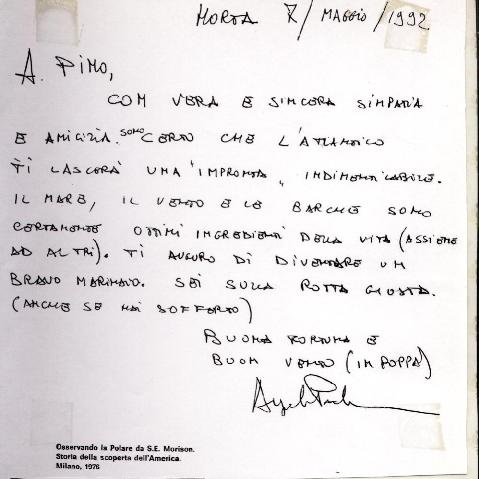 HORTA 7/MAGGIO/1992
A. PINO,
CON VERA E SINCERA SIMPATIA
E AMICIZIA. SONO CERTO CHE L'ATLANTICO
TI LASCERÀ UNA "IMPRONTA" INDIMENTICABILE.
IL MARE, IL VENTO E LE BARCHE SONO
CERTAMENTE OTTIMI INGREDIENTI DELLA VITA (ASSIEME
AD ALTRI). TI AUGURO DI DIVENTARE UN
BRAVO MARINAIO. SEI SULLA ROTTA GIUSTA.
(ANCHE SE HAI SOFFERTO)
BUONA FORTUNA E
BUON VENTO (IN POPPA)
Osservando la Polare da S.E. Morison.
Storia della scoperta dell'America.
Milano, 1976